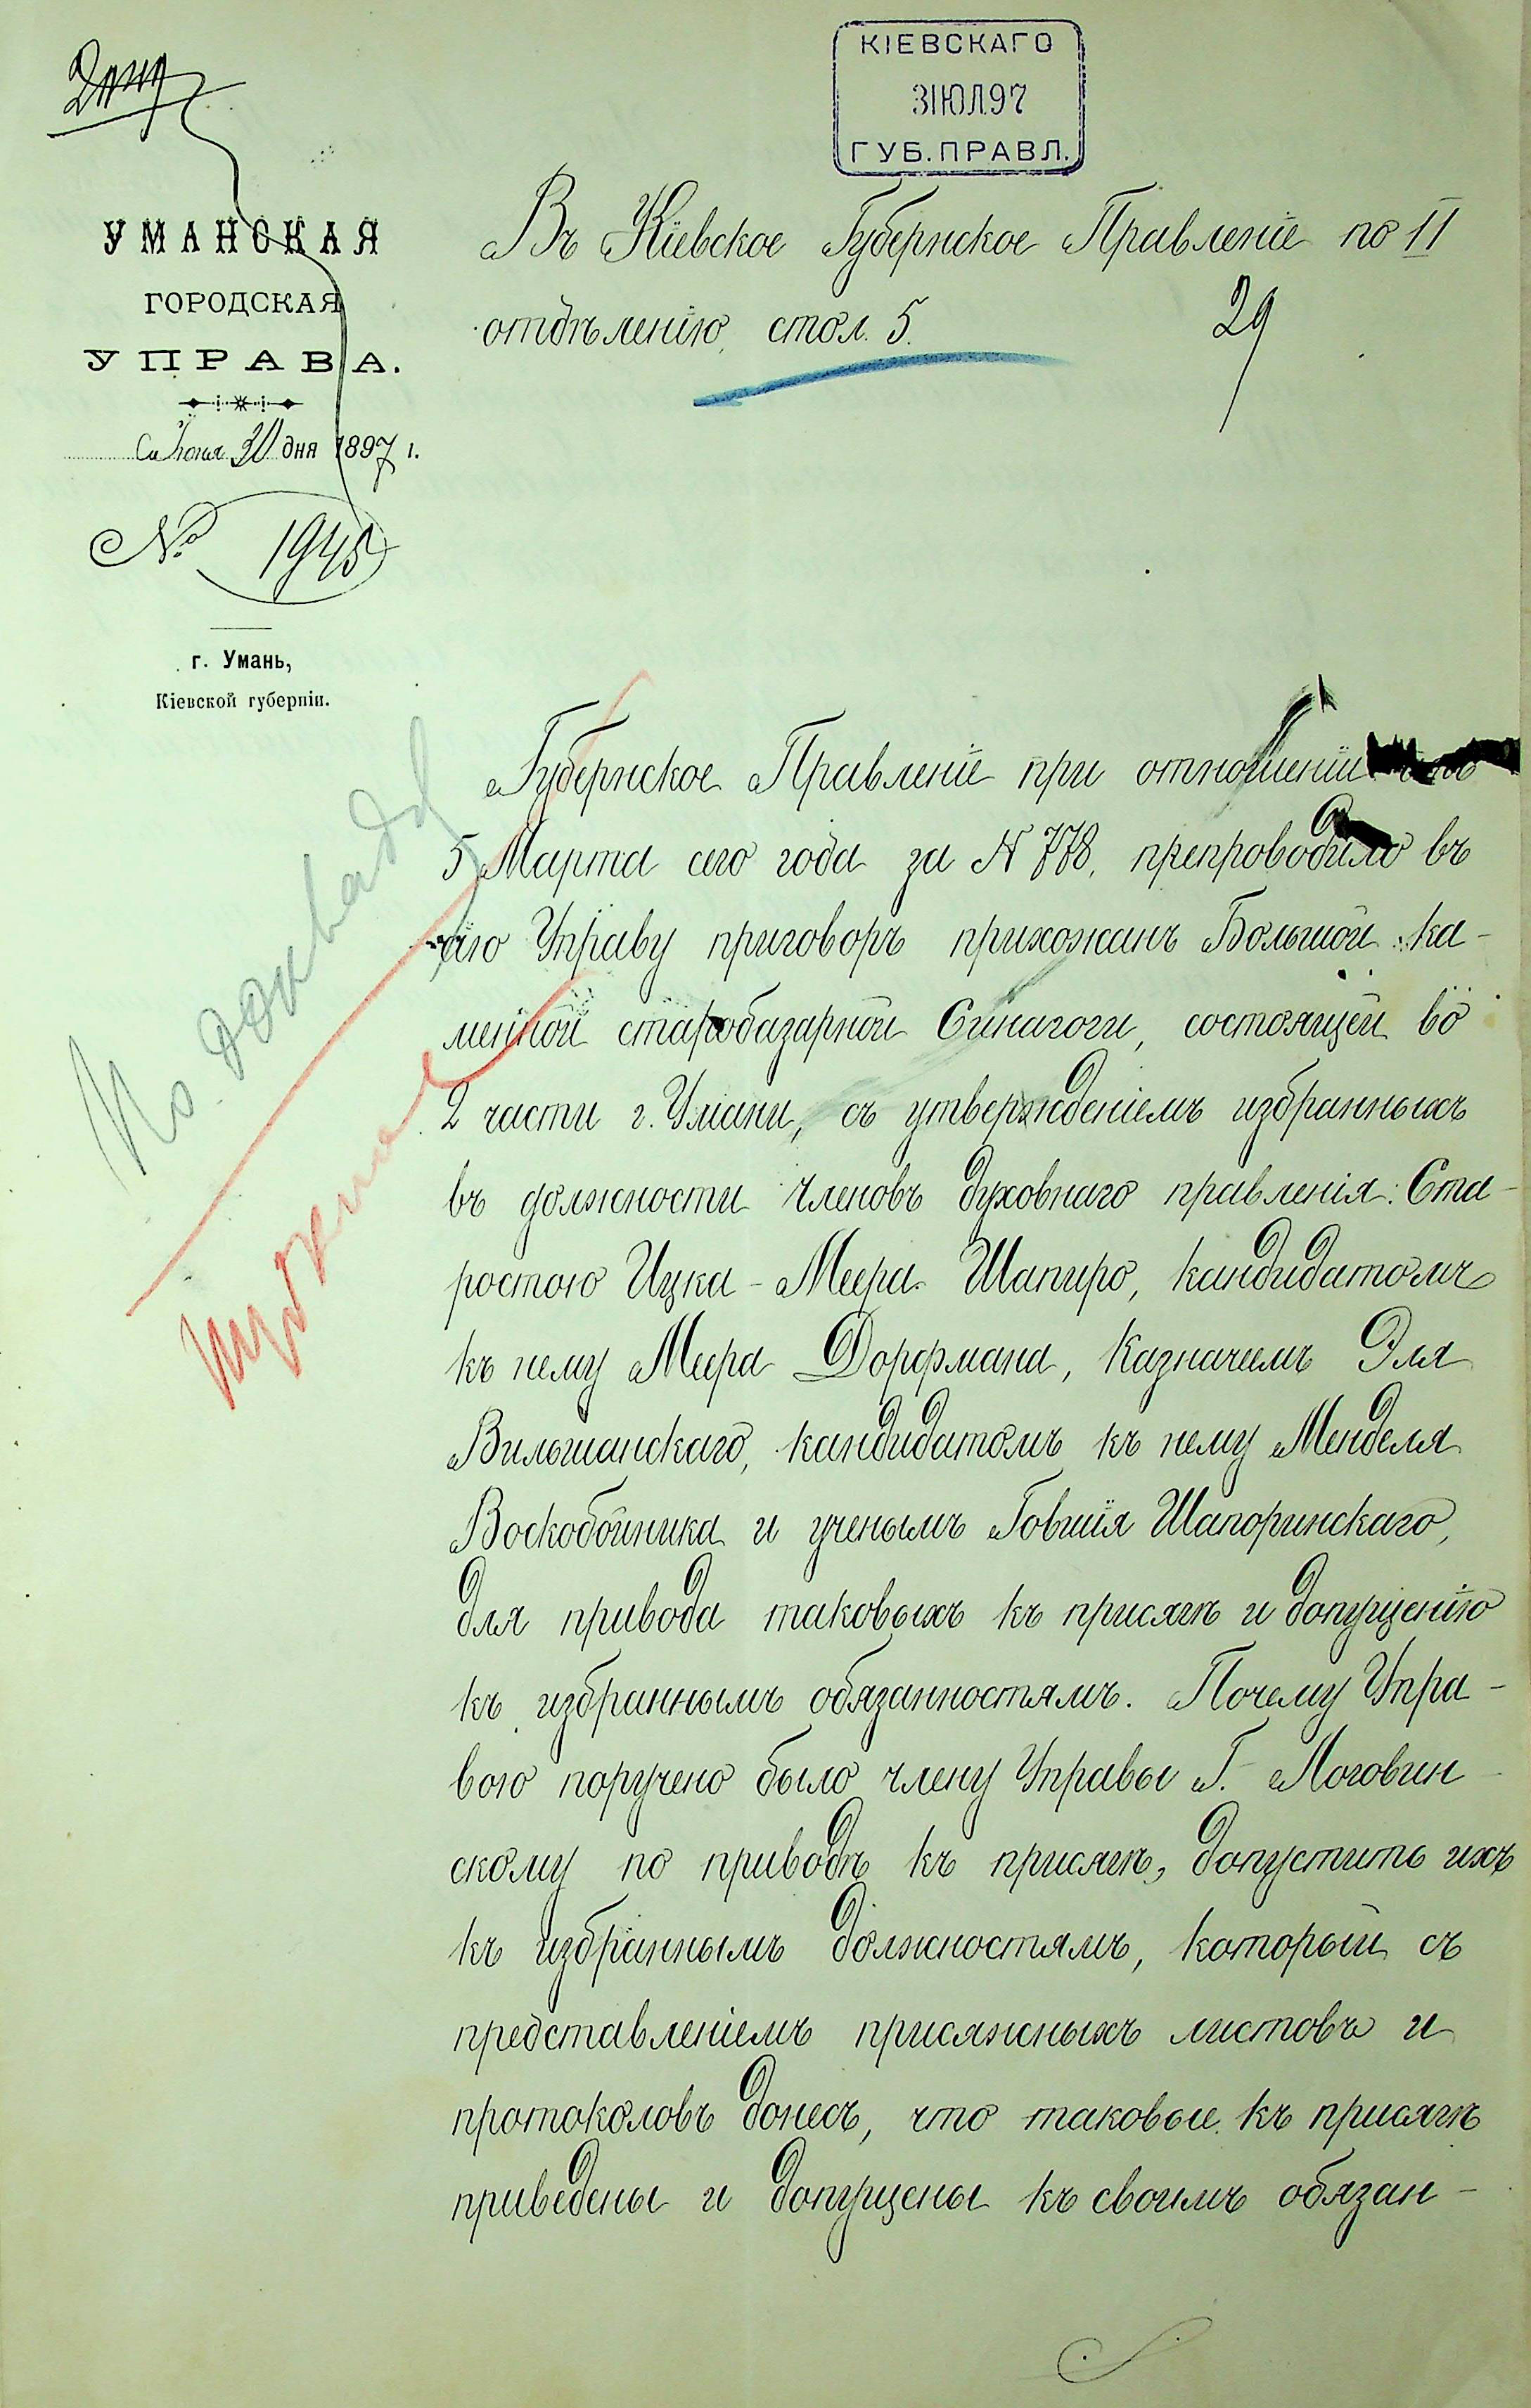 КІЕВСКАГО
3 ІЮЛ 97
ГУБ. ПРАВЛ.
УМАНСКАЯ
ГОРОДСКАЯ
УПРАВА.
Іюня 30 дня 1897 г.
№ 1945
г. Умань,
Кіевской губерніи.
Въ Кіевское Губернское Правленіе по II
отдѣленію, стол. 5.
29
По докладу
Губернское Правленіе при отношеніи отъ
5 Марта сего года за № 778, препроводило въ
сію Управу приговоръ прихожанъ Большой ка-
менной старобазарной Синагоги, состоящей во
2 части г. Умани, съ утвержденіемъ избранныхъ
въ должности членовъ духовнаго правленія: Ста-
ростою Ицка-Меера Шапиро, кандидатомъ
къ нему Меера Дорфмана, Казначеемъ Эля
Вильшанскаго, кандидатомъ къ нему Менделя
Воскобойника и ученымъ Говшія Шапоринскаго,
для привода таковыхъ къ присягѣ и допущенію
къ избраннымъ обязанностямъ. Почему Упра-
вою поручено было члену Управы Г. Логовин-
скому по приводѣ къ присягѣ, допустить ихъ
къ избраннымъ должностямъ, который съ
представленіемъ присяжныхъ листовъ и
протоколовъ донесъ, что таковые къ присягѣ
приведены и допущены къ своимъ обязан-